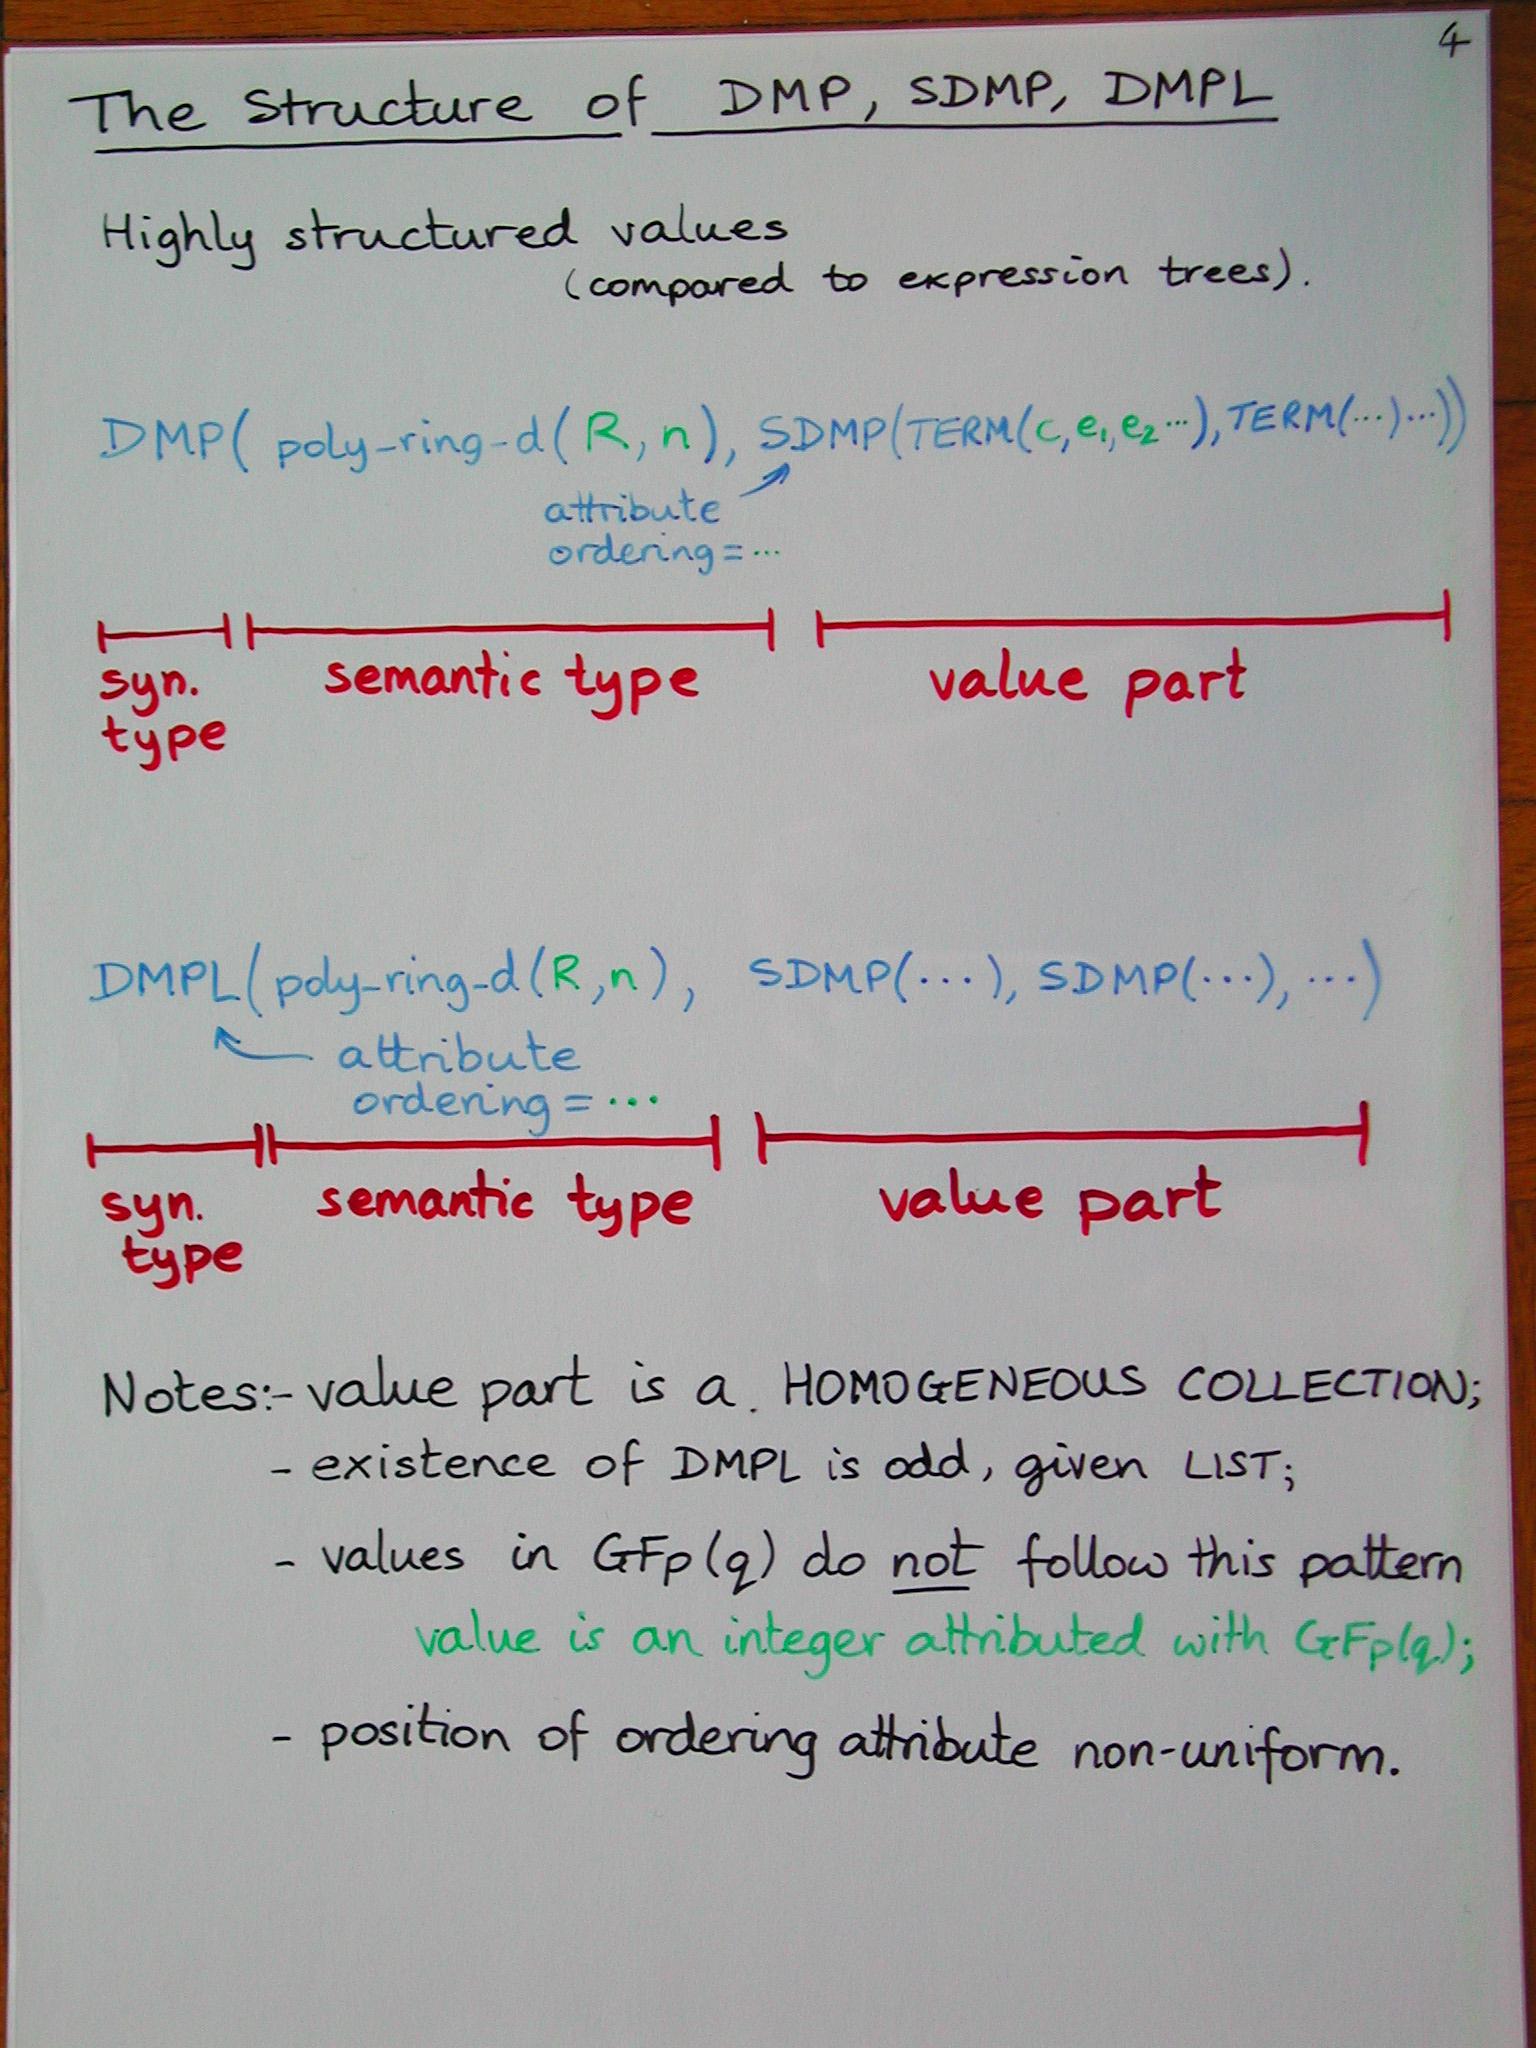 4
The Structure of DMP, SDMP, DMPL
Highly structured values
(compared to expression trees).
DMP( poly-ring-d(R, n), SDMP(TERM(c, e₁, e₂ ...), TERM(...) ...))
attribute
ordering = ...
syn. semantic type value part
type
DMPL(poly-ring-d(R, n), SDMP(...), SDMP(...), ...)
attribute
ordering = ...
syn. semantic type value part
type
Notes:- value part is a HOMOGENEOUS COLLECTION;
- existence of DMPL is odd, given LIST;
- values in GFp(q) do not follow this pattern
value is an integer attributed with GFp(q);
- position of ordering attribute non-uniform.